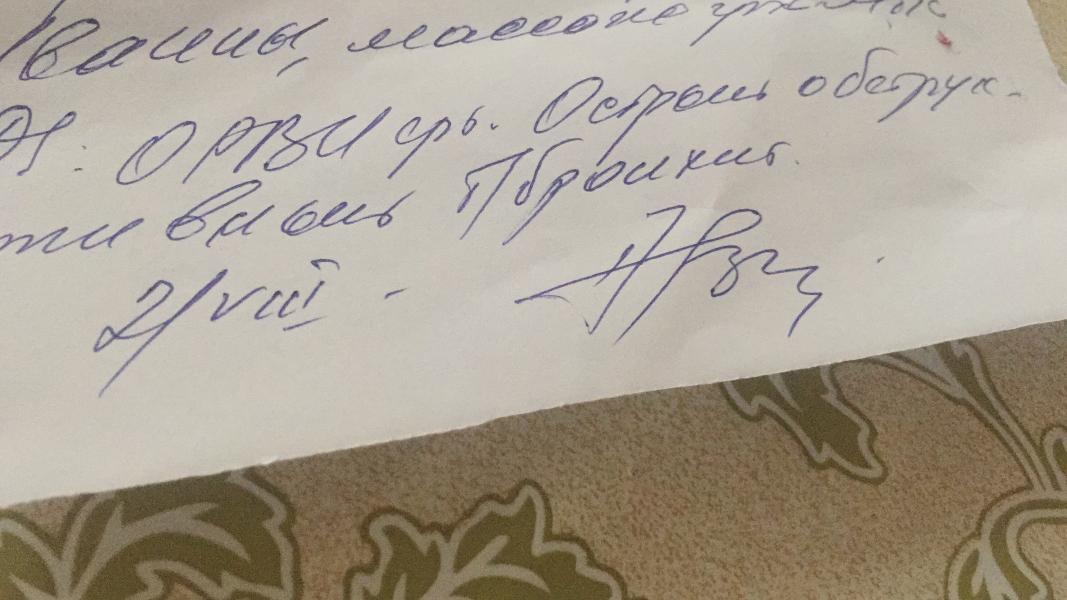 ванны, массаж грудной
Ds: ОРВИ ср. Острый обструк-
тивный бронхит.
2/VIII -